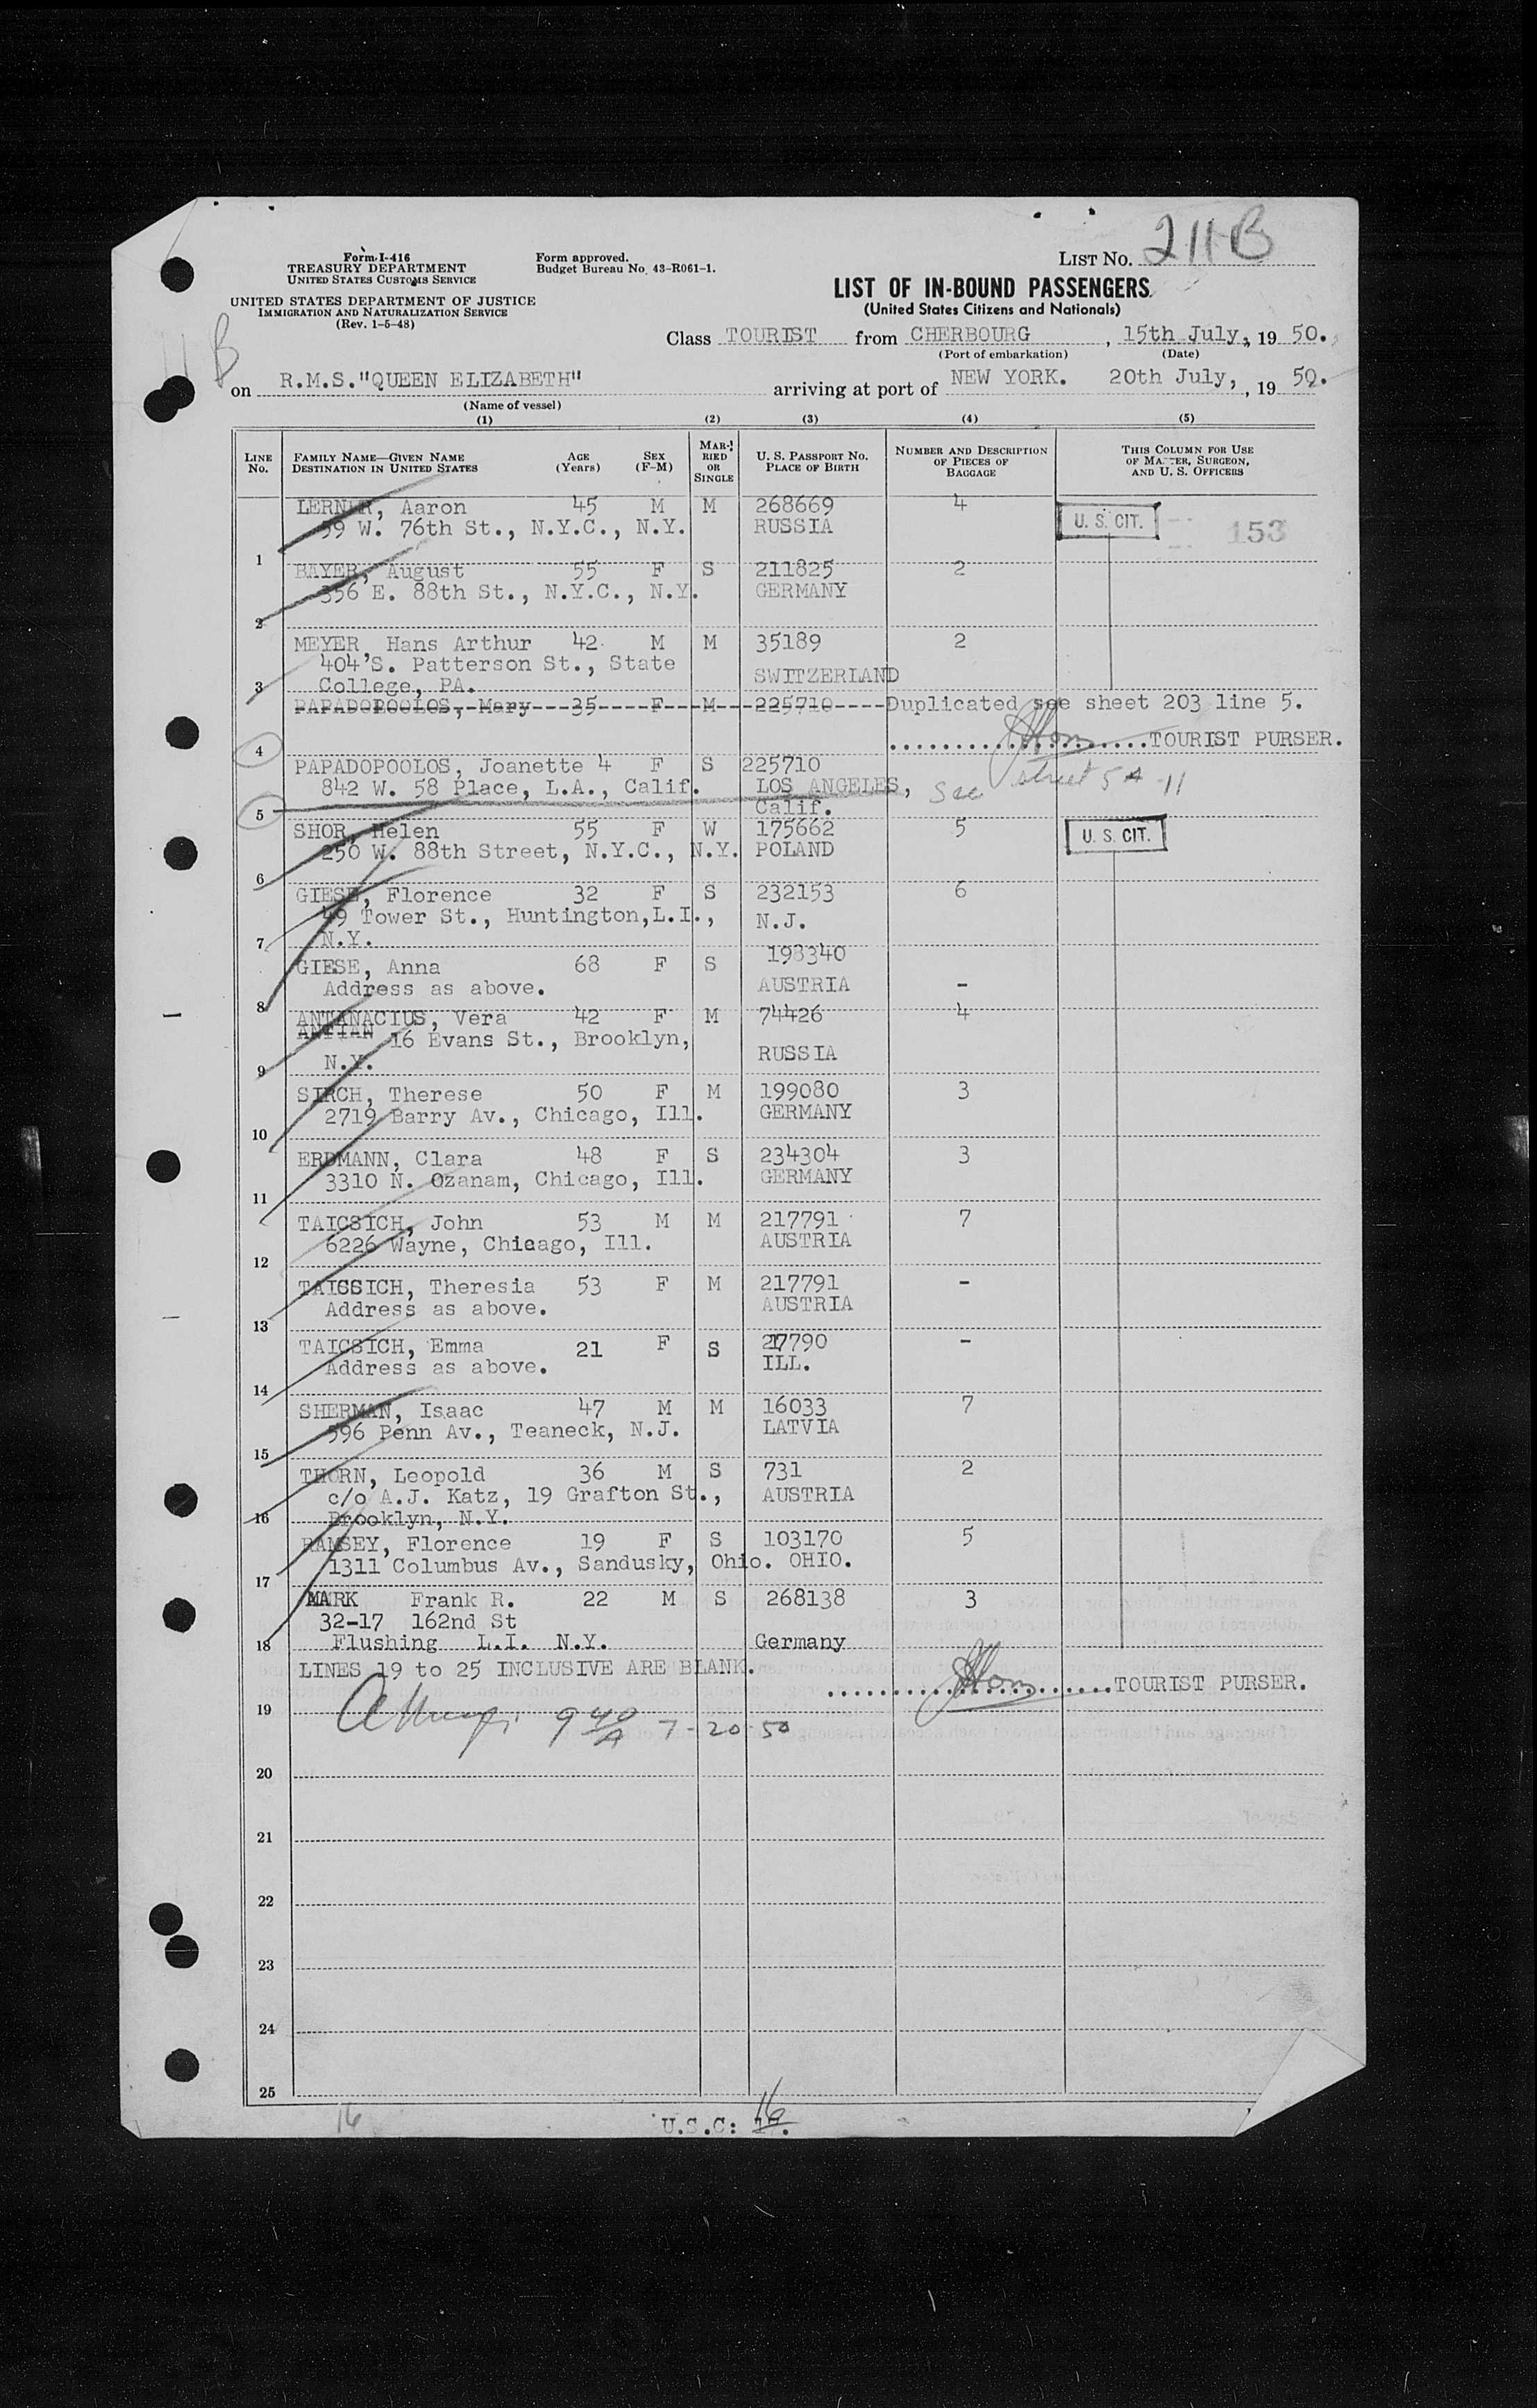 211B
Form I-416
TREASURY DEPARTMENT
UNITED STATES CUSTOMS SERVICE
UNITED STATES DEPARTMENT OF JUSTICE
IMMIGRATION AND NATURALIZATION SERVICE
(Rev. 1-5-48)
Form approved.
Budget Bureau No. 43-R061-1.
LIST NO.
LIST OF IN-BOUND PASSENGERS
(United States Citizens and Nationals)
11 B
Class TOURIST from CHERBOURG, 15th July, 19 50.
(Port of embarkation) (Date)
on R.M.S."QUEEN ELIZABETH" arriving at port of NEW YORK. 20th July, , 19 50.
(Name of vessel)
(1) (2) (3) (4) (5)
LINE No. FAMILY NAME—GIVEN NAME DESTINATION IN UNITED STATES AGE (Years) SEX (F-M) MARRIED OR SINGLE U. S. PASSPORT NO. PLACE OF BIRTH NUMBER AND DESCRIPTION OF PIECES OF BAGGAGE THIS COLUMN FOR USE OF MASTER, SURGEON, AND U. S. OFFICERS
LERNER, Aaron 45 M M 268669 4
59 W. 76th St., N.Y.C., N.Y. RUSSIA U. S. CIT. 153
1
BAYER, August 55 F S 211825 2
356 E. 88th St., N.Y.C., N.Y. GERMANY
2
MEYER Hans Arthur 42 M M 35189 2
404 S. Patterson St., State
SWITZERLAND
3 College, PA.
PAPADOPOOLOS, Mary 35 F M 225710 Duplicated see sheet 203 line 5.
4 TOURIST PURSER.
PAPADOPOOLOS, Joanette 4 F S 225710
842 W. 58 Place, L.A., Calif. LOS ANGELES, See sheet 54-11
5 Calif.
SHOR, Helen 55 F W 175662 5 U. S. CIT.
250 W. 88th Street, N.Y.C., N.Y. POLAND
6
GIESE, Florence 32 F S 232153 6
49 Tower St., Huntington, L.I., N.J.
7 N.Y.
GIESE, Anna 68 F S 198340
Address as above. AUSTRIA -
8
ANTANACIUS, Vera 42 F M 74426 4
ANTIAN 16 Evans St., Brooklyn,
RUSSIA
9 N.Y.
SIRCH, Therese 50 F M 199080 3
2719 Barry Av., Chicago, Ill. GERMANY
10
ERDMANN, Clara 48 F S 234304 3
3310 N. Ozanam, Chicago, Ill. GERMANY
11
TAICSICH, John 53 M M 217791 7
6226 Wayne, Chicago, Ill. AUSTRIA
12
TAICSICH, Theresia 53 F M 217791 -
Address as above. AUSTRIA
13
TAICSICH, Emma 21 F S 27790 -
Address as above. ILL.
14
SHERMAN, Isaac 47 M M 16033 7
596 Penn Av., Teaneck, N.J. LATVIA
15
THORN, Leopold 36 M S 731 2
c/o A.J. Katz, 19 Grafton St., AUSTRIA
16 Brooklyn, N.Y.
RAMSEY, Florence 19 F S 103170 5
1311 Columbus Av., Sandusky, Ohio. OHIO.
17
MARK Frank R. 22 M S 268138 3
32-17 162nd St
18 Flushing L.I. N.Y. Germany
LINES 19 to 25 INCLUSIVE ARE BLANK.
TOURIST PURSER.
19
9 40/A 7-20 50
20
21
22
23
24
25
16
U.S.C: 17. 16